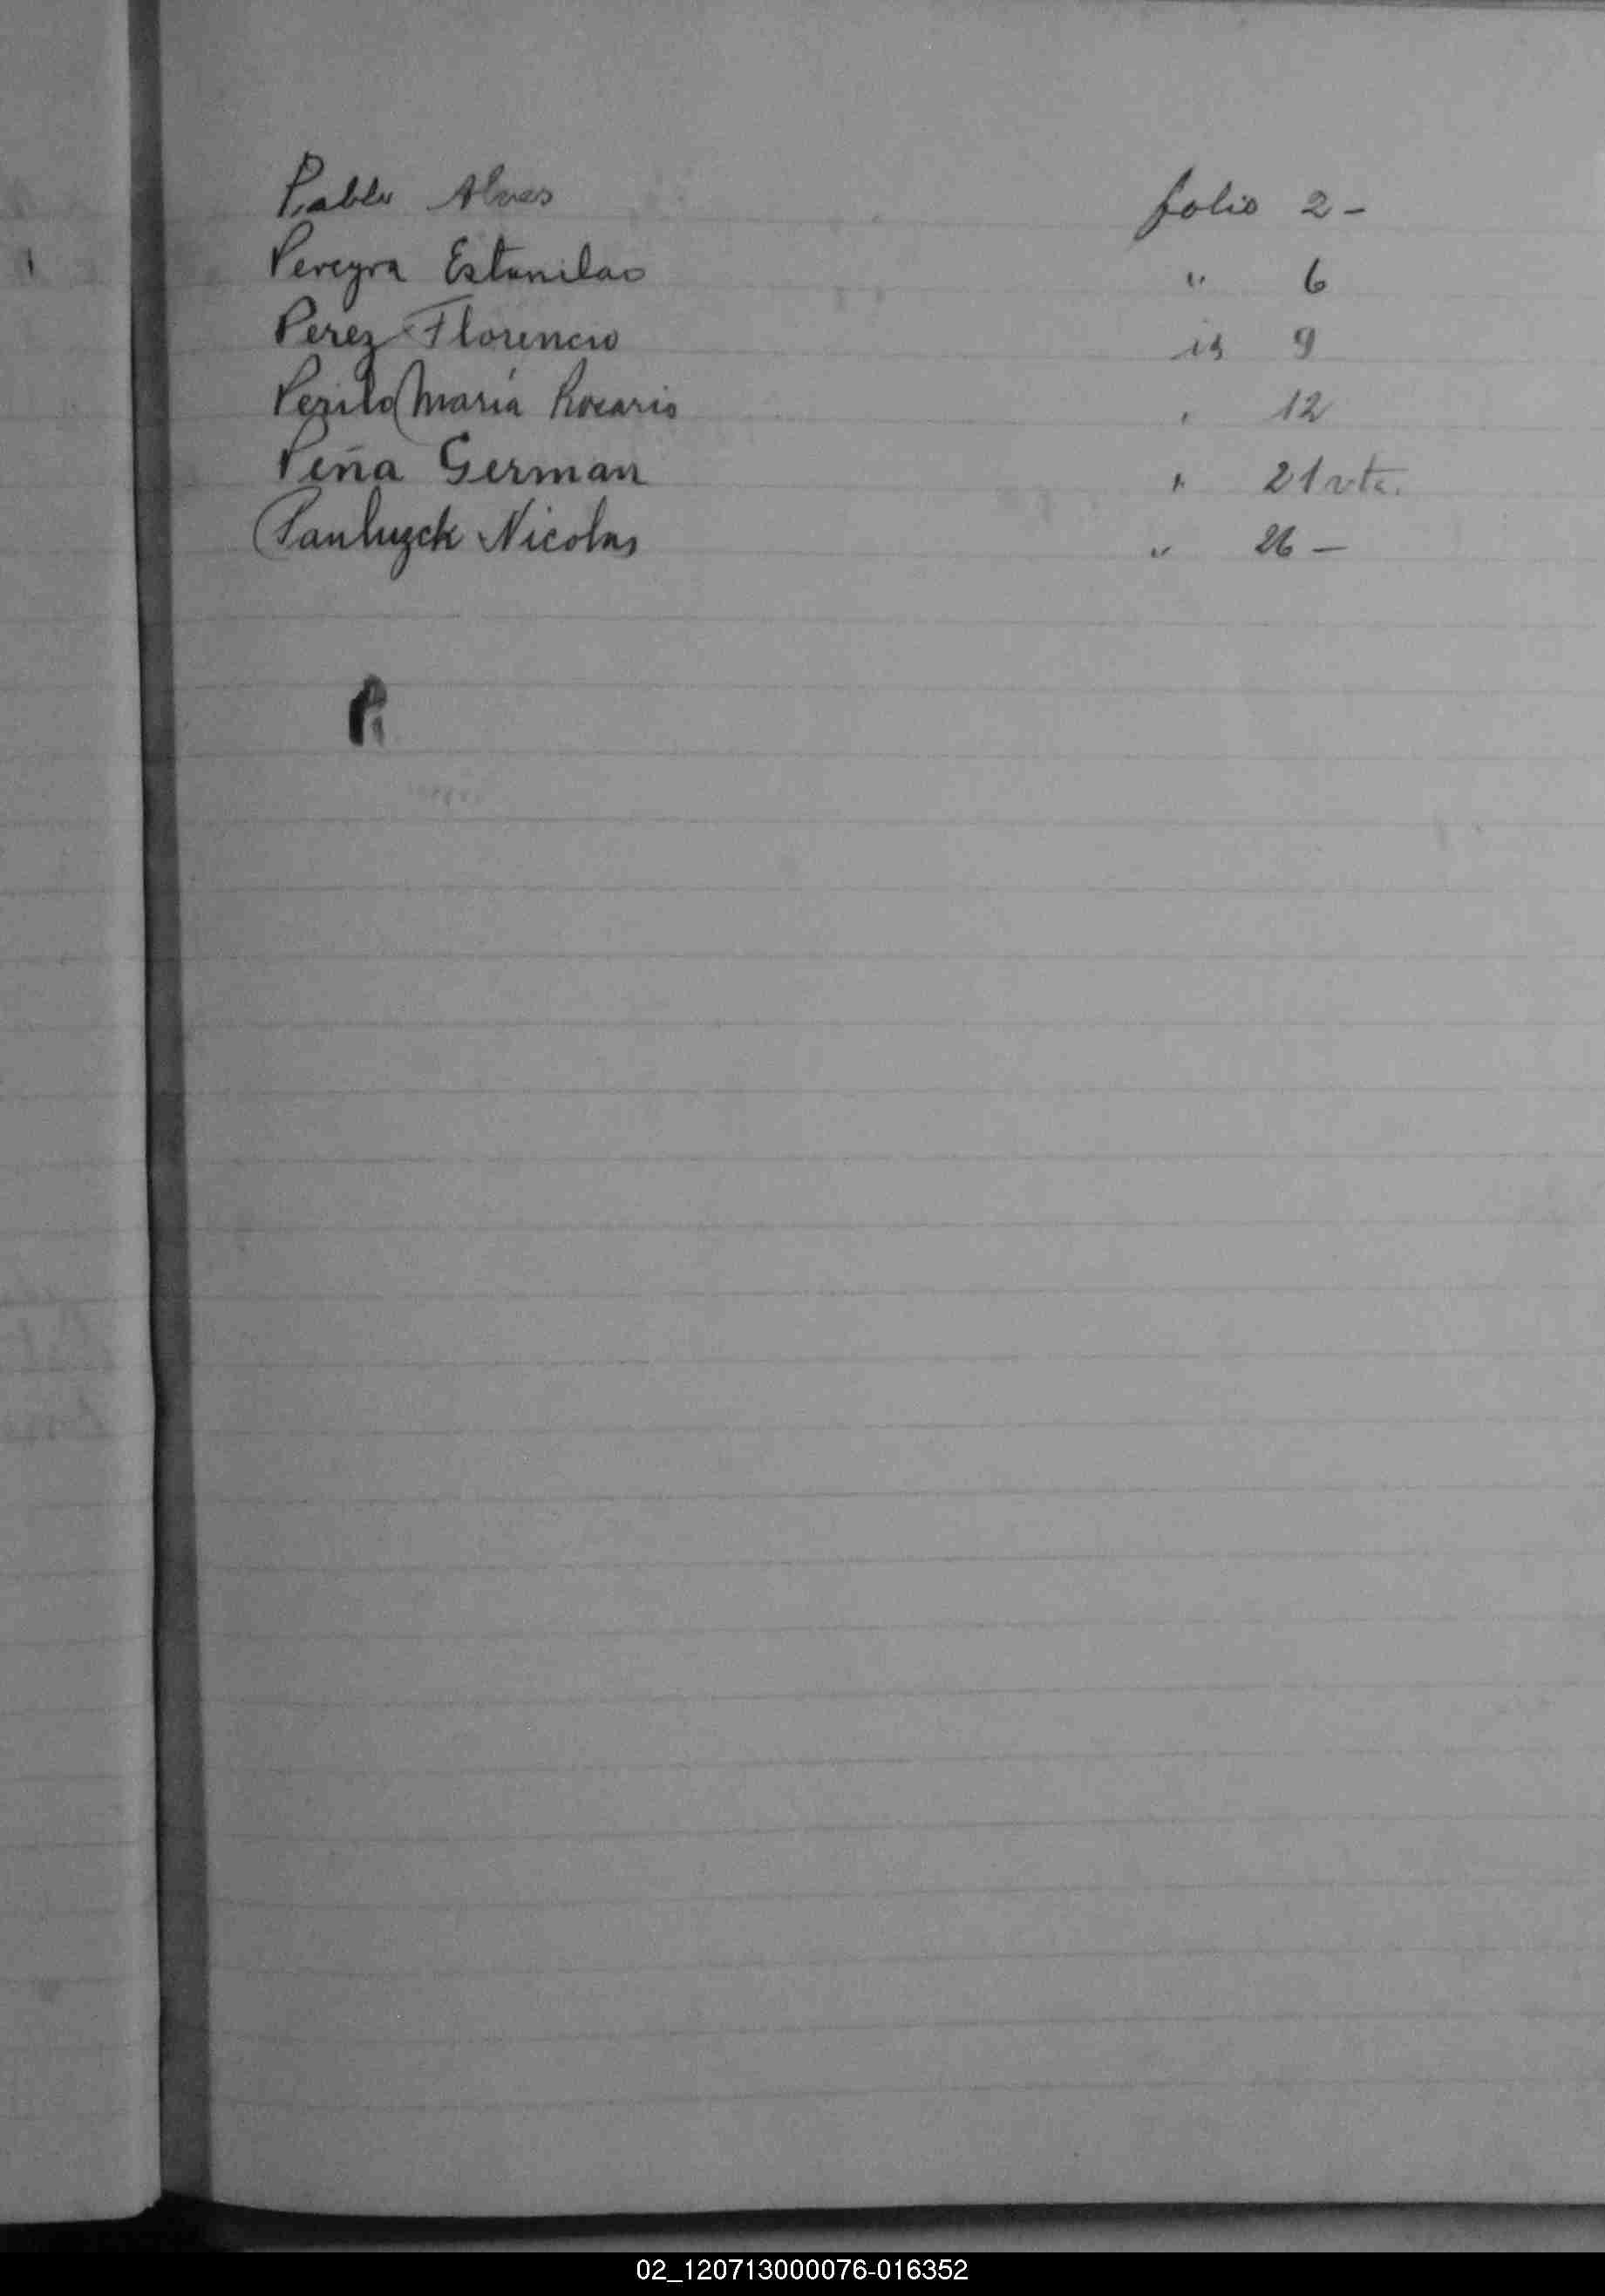 Pablo Alves folio 2 -
Pereyra Estanilao " 6
Perez Florencio is 9
Perito Maria Rosario " 12
Peña German " 21 vta.
Pauluzck Nicolas " 26 -
P
02_120713000076-016352